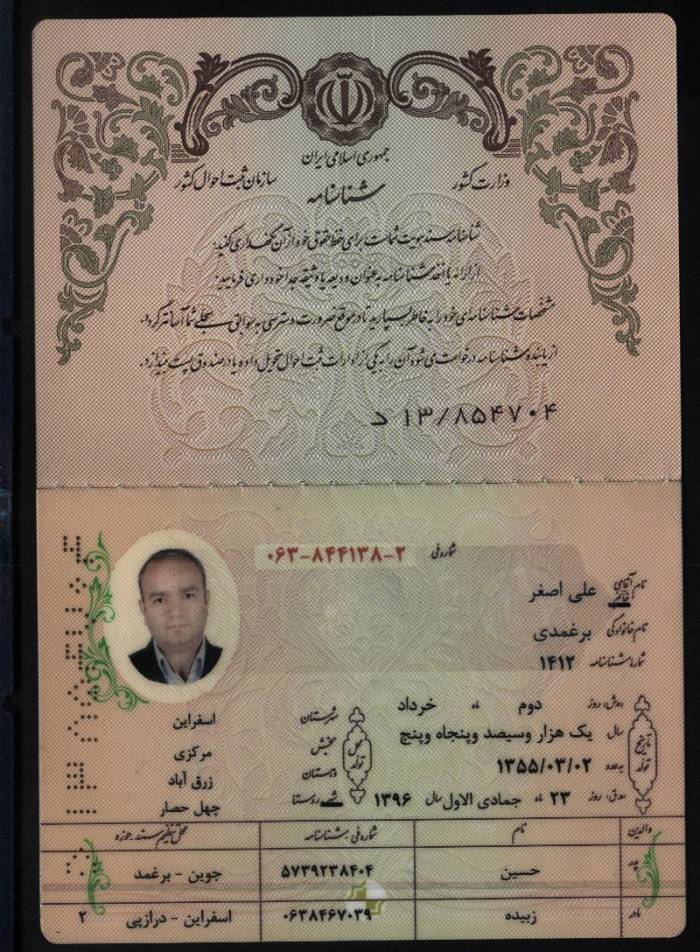 جمهوری اسلامی ایران
وزارت کشور
سازمان ثبت احوال کشور
شناسنامه
شناسنامه سند هویت شماست برای حفظ حقوق خود از آن نگهداری کنید.
از ارائه یا اخذ شناسنامه به عنوان ودیعه یا وثیقه جداً خودداری فرمایید.
مشخصات شناسنامه‌ای خود را به خاطر بسپارید تا در موقع ضرورت دسترسی به سوابق سجلی شما آسانتر گردد.
از یابنده شناسنامه درخواست می شود آن را به یکی از ادارات ثبت احوال تحویل داده یا در صندوق پست بیندازد.
د ۱۳/۸۵۴۷۰۴
شماره ملی ۰۶۳-۸۴۴۱۳۸-۲
نام آقای خانم علی اصغر
نام خانوادگی برغمدی
شماره شناسنامه ۱۴۱۲
تاریخ تولد
(ه‍.ش) روز دوم ماه خرداد
سال یک هزار وسیصد وپنجاه وپنج
به عدد ۱۳۵۵/۰۳/۰۲
(ه‍.ق) روز ۲۳ ماه جمادی الاول سال ۱۳۹۶
محل تولد
شهرستان اسفراین
بخش مرکزی
دهستان زرق آباد
شهر روستا چهل حصار
والدین نام شماره ملی / شناسنامه محل تنظیم سند / حوزه
پدر حسین ۵۷۳۹۲۳۸۴۰۴ جوین - برغمد
مادر زبیده ۰۶۳۸۴۶۷۰۳۹ اسفراین - درازپی ۲